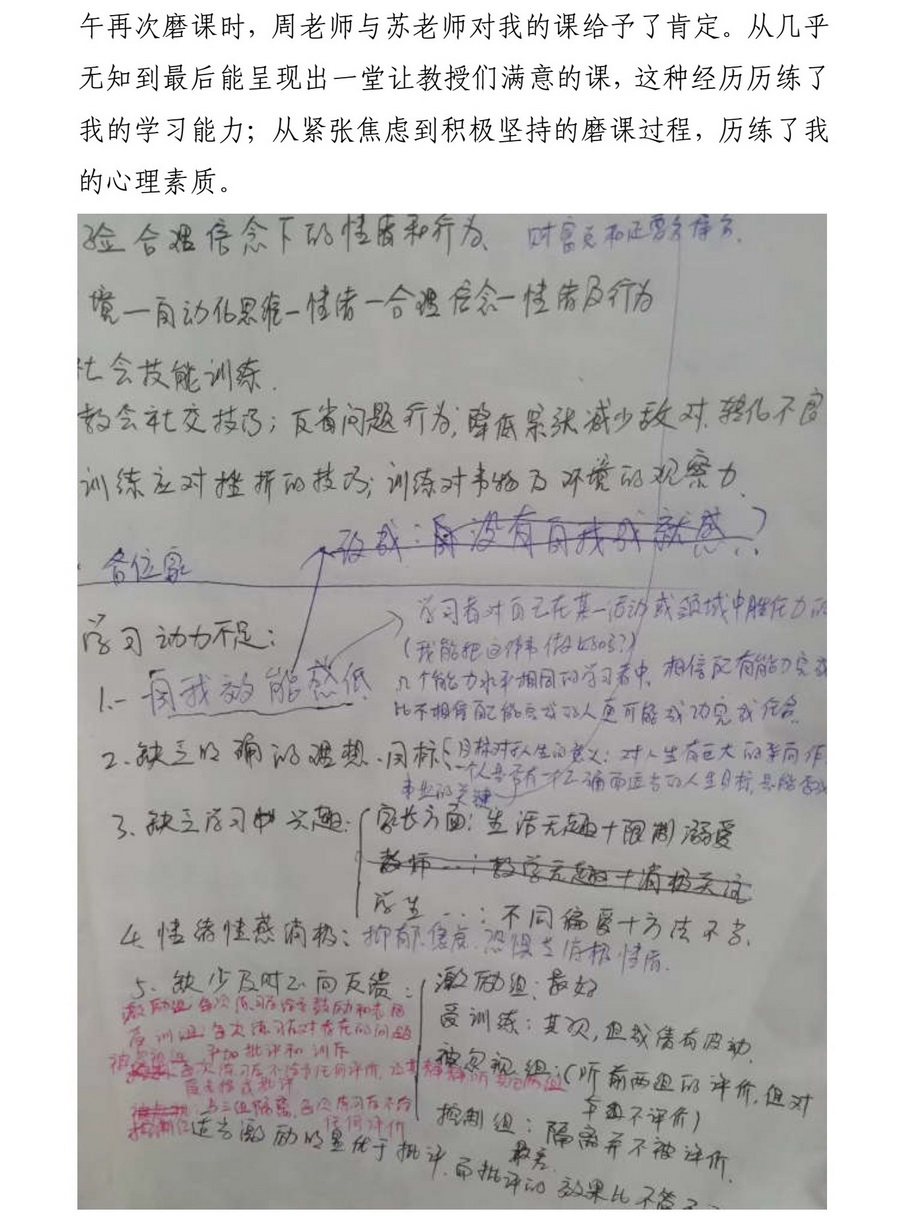 午再次磨课时，周老师与苏老师对我的课给予了肯定。从几乎
无知到最后能呈现出一堂让教授们满意的课，这种经历历练了
我的学习能力；从紧张焦虑到积极坚持的磨课过程，历练了我
的心理素质。
验合理信念下的情绪和行为、
境—自动化思维—情绪—合理信念—情绪及行为
社会技能训练.
教会社交技巧；反省问题行为；降低紧张减少敌对.转化不良
训练应对挫折的技巧；训练对事物及环境的观察力.
改成：没有自我成就感？
各位家
学习动力不足：
学习者对自己在某一活动或领域中胜任力的
（我能把这件事做好吗？）
1.—自我效能感低
几个能力水平相同的学习者中，相信自己有能力完成
比不相信自己能完成的人更可能成功完成任务
2.缺乏明确的理想、目标
目标对人生的意义：对人生有巨大的导向作
一个人是否有一个正确而远大的人生目标，是能否成
事业的关键
3.缺乏学习兴趣：
家长方面：生活无趣+限制溺爱
教师…：教学无趣+消极关注
学生…：不同偏爱+方法不当.
4.情绪情感消极：抑郁、焦虑、恐惧等消极情绪.
5.缺少及时正向反馈：
激励组：最好
受训练：其次，但成绩有波动.
被忽视组：（听前两组的评价，但对
本组不评价）
控制组：隔离并不被评价.
最差.
激励组 每次练习后给予鼓励和表扬
受训组：每次练习后对存在的问题
严加批评和训斥
每次练习后不给予任何评价，
与三组隔离，每次练习后不给
控制组 任何评价
适当激励明显优于批评.而批评的效果比不管